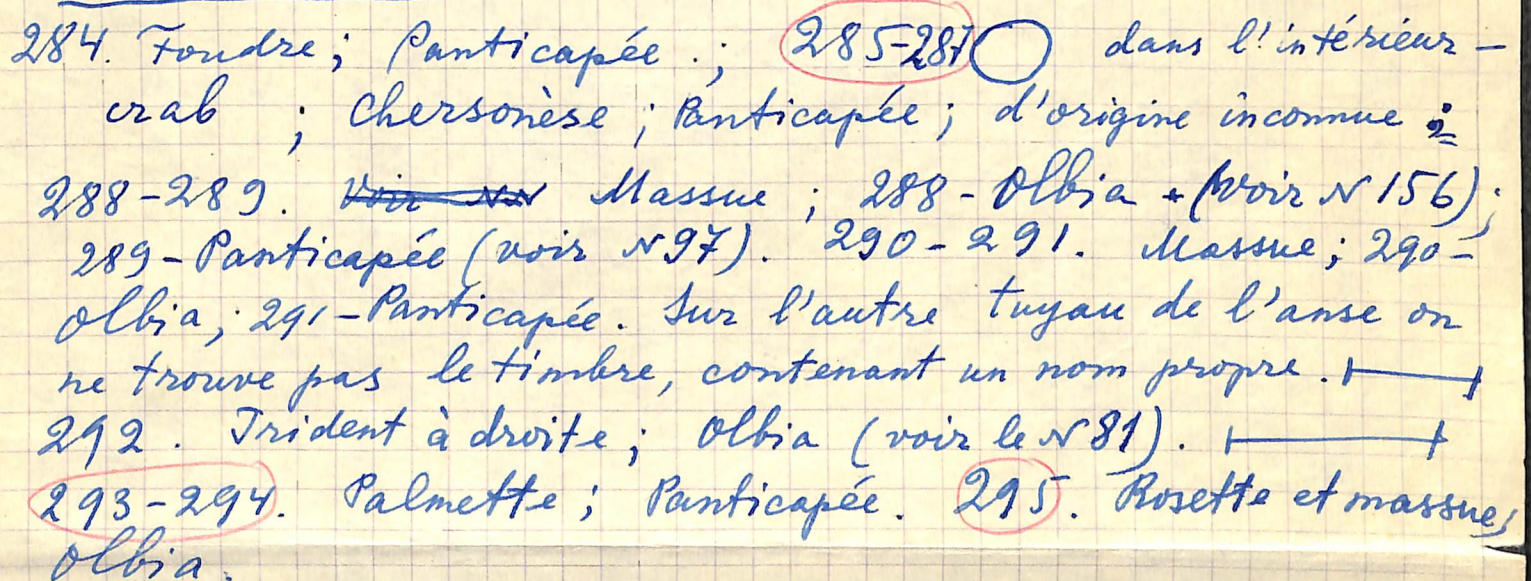 284. Foudre; Panticapée.; 285-287 dans l'intérieur –
crab ; Chersonèse ; Panticapée ; d'origine inconnue ;
288-289. Voir NN Massue ; 288 - Olbia (voir N 156) ;
289 - Panticapée (voir N 97). 290 - 291. Massue ; 290 -
Olbia ; 291 - Panticapée. Sur l'autre tuyau de l'anse on
ne trouve pas le timbre, contenant un nom propre.
292. Trident à droite ; Olbia (voir le N 81).
293-294. Palmette ; Panticapée. 295. Rosette et massue,
Olbia.